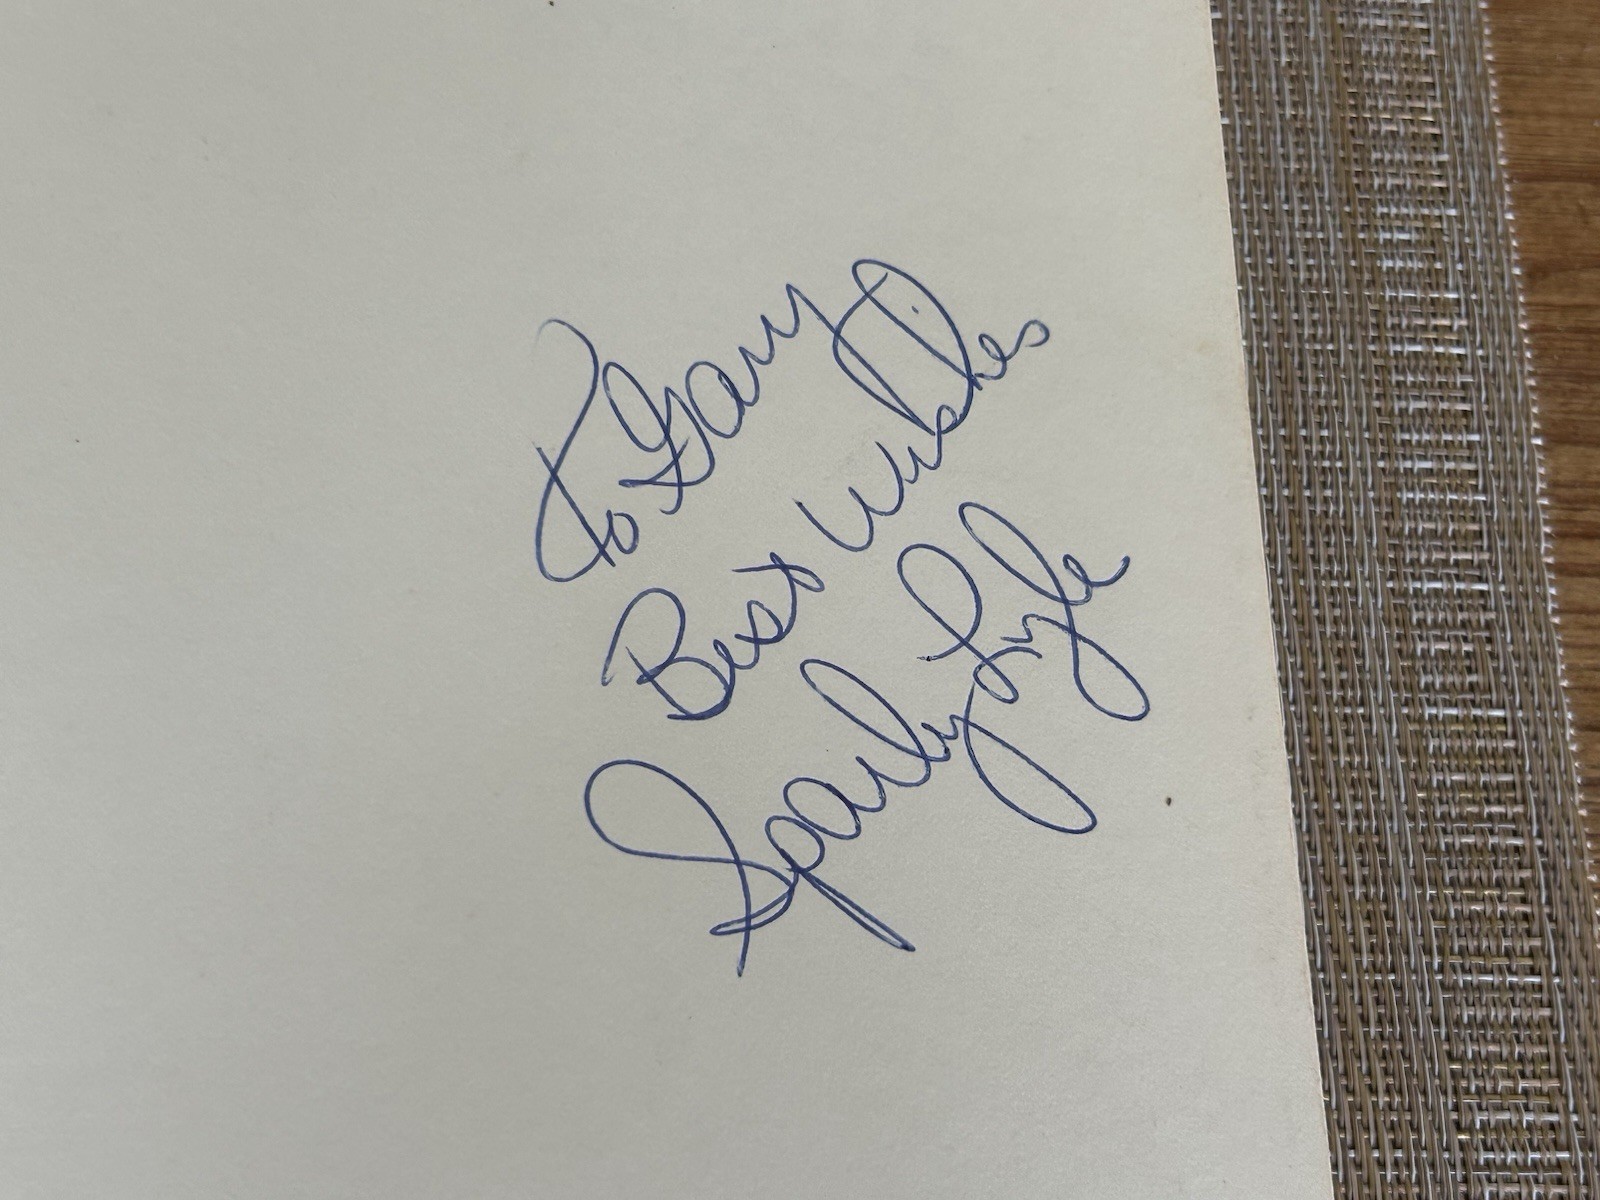 To Gary
Best Wishes
Sparky Lyle